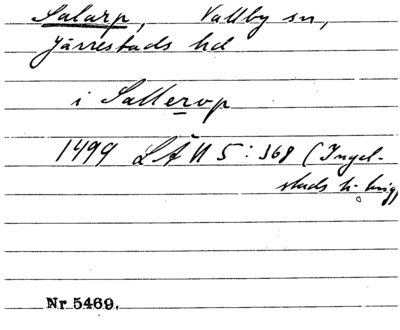 Salarp, Vallby sn,
Järrestads hd
i Sallerop
1499 LÄN 5: 368 (Ingel-
stads h.
Nr 5469.